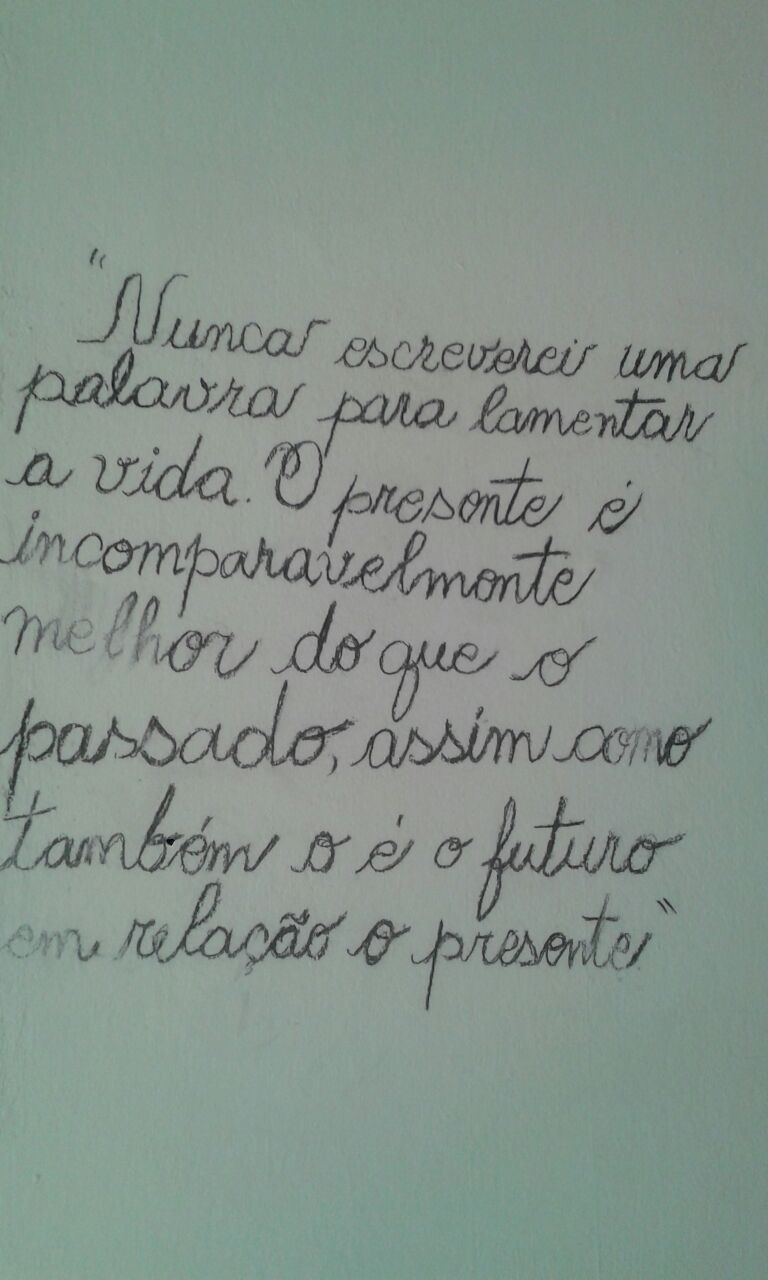 "Nunca escreverei uma
palavra para lamentar
a vida. O presente é
incomparavelmente
melhor do que o
passado, assim como
também o é o futuro
em relação o presente"